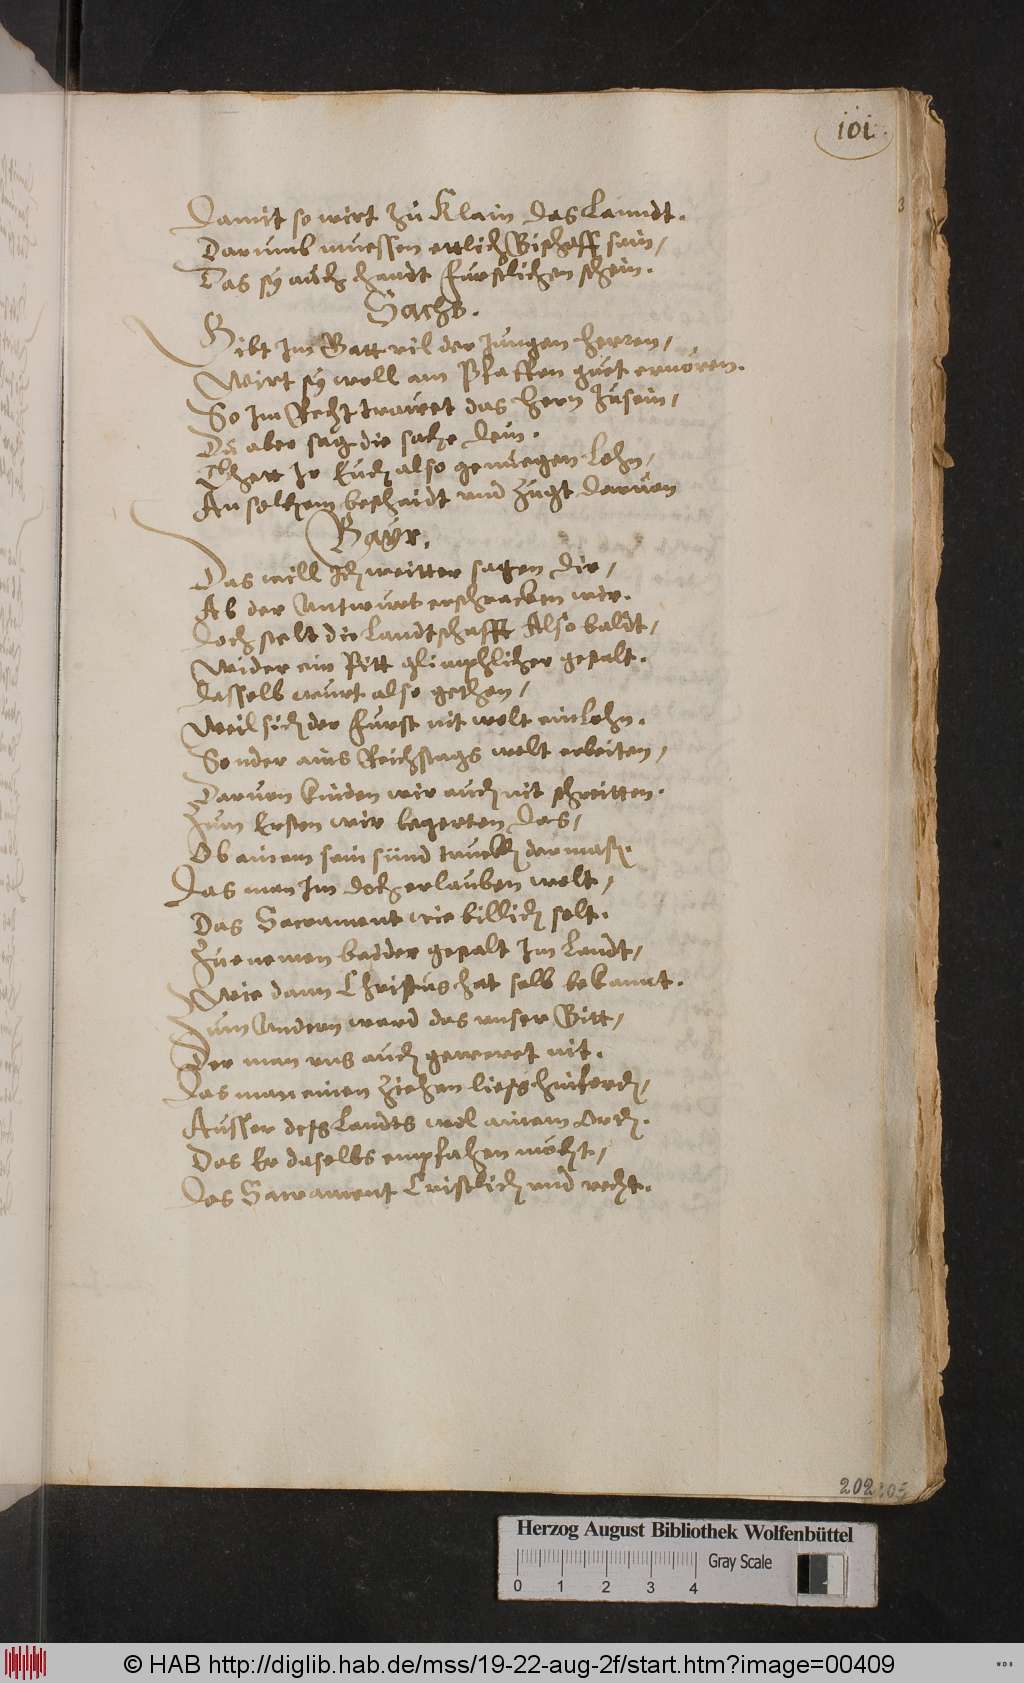 101
Damit so wirt zu Klain das Lanndt.
Darumb muessen ettlich Bischoff sein,
Das sy auch handt furstlichen schein.
Sachs.
Gibt Im Gatt vil der Jungen herren,
Wirt sy woll am Pfaffen guet ernören.
So Im Recht trawet das hern zusein,
Du aber sag die sache dein.
Thett Ir Euch also genuegen lohn,
An solchem beschaidt vnd zugt daruon
Bayr.
Das will Ich weitter sagen dir,
Ab der Antwurt erschracken wir.
Doch stelt die Landtschafft Also baldt,
Wider ein Pitt glimphlicher gestalt.
Dasselb wurt also gethon,
Weil sich der Furst nit wolt einlohn.
Sonder ains Reichstags wolt erbeiten,
Daruon kinden wir auch nit schreitten.
Zum Ersten wir begerten das,
Ob ainem sein sünd truckh dermass.
Das man Im doch erlauben wolt,
Das Sacrament wie billich solt.
Zuenemen badder gestalt Im Landt,
Wie dann Christus hat selb bekannt.
Zum Andern ward das vnser Bitt,
Der man vns auch geweret nit.
Das man einen ziehen liess hinfordt,
Ausser dess Landts wol ainem ordt.
Das Er daselbs empfahen möcht,
Das Sacrament Cristlich vnd recht.
202
Herzog August Bibliothek Wolfenbüttel
0 1 2 3 4 Gray Scale
© HAB http://diglib.hab.de/mss/19-22-aug-2f/start.htm?image=00409